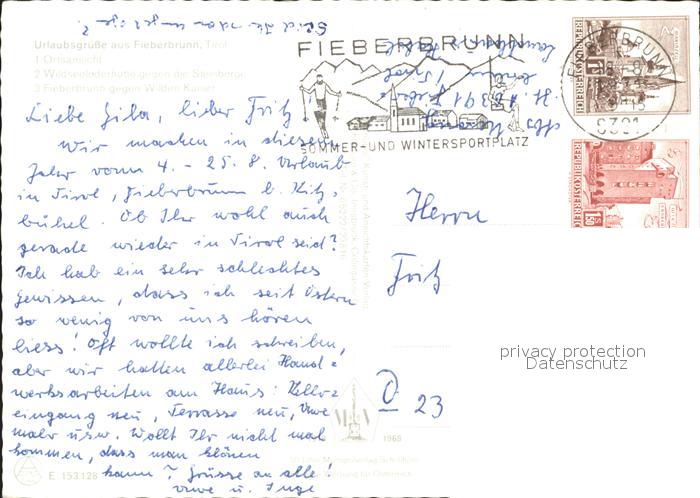 Seid Ihr
Urlaubsgrüße aus Fieberbrunn, Tirol
1 Ortsansicht
2 Wildseeloderhütte gegen die Steinberge
3 Fieberbrunn gegen Wilden Kaiser
FIEBERBRUNN
SOMMER- UND WINTERSPORTPLATZ
FIEBERBRUNN
6391
REPUBLIK ÖSTERREICH
REPUBLIK ÖSTERREICH
1.50
Liebe Gila, lieber Fritz!
Wir machen in diesem
Jahr vom 4. - 25. 8. Urlaub
in Tirol, Fieberbrunn b. Kitz-
bühel. Ob Ihr wohl auch
gerade wieder in Tirol seid?
Ich hab ein sehr schlechtes
gewissen, dass ich seit Ostern
so wenig von uns hören
liess! Oft wollte ich schreiben,
aber wir hatten allerlei Hand=
werksarbeiten am Haus: Keller=
eingang neu, Terrasse neu,
usw. Wollt Ihr nicht mal
kommen, dass man klönen
kann? Grüsse an alle!
Uwe u. Inge
Herrn
Fritz
D 23
privacy protection
Datenschutz
1968
E 153.128